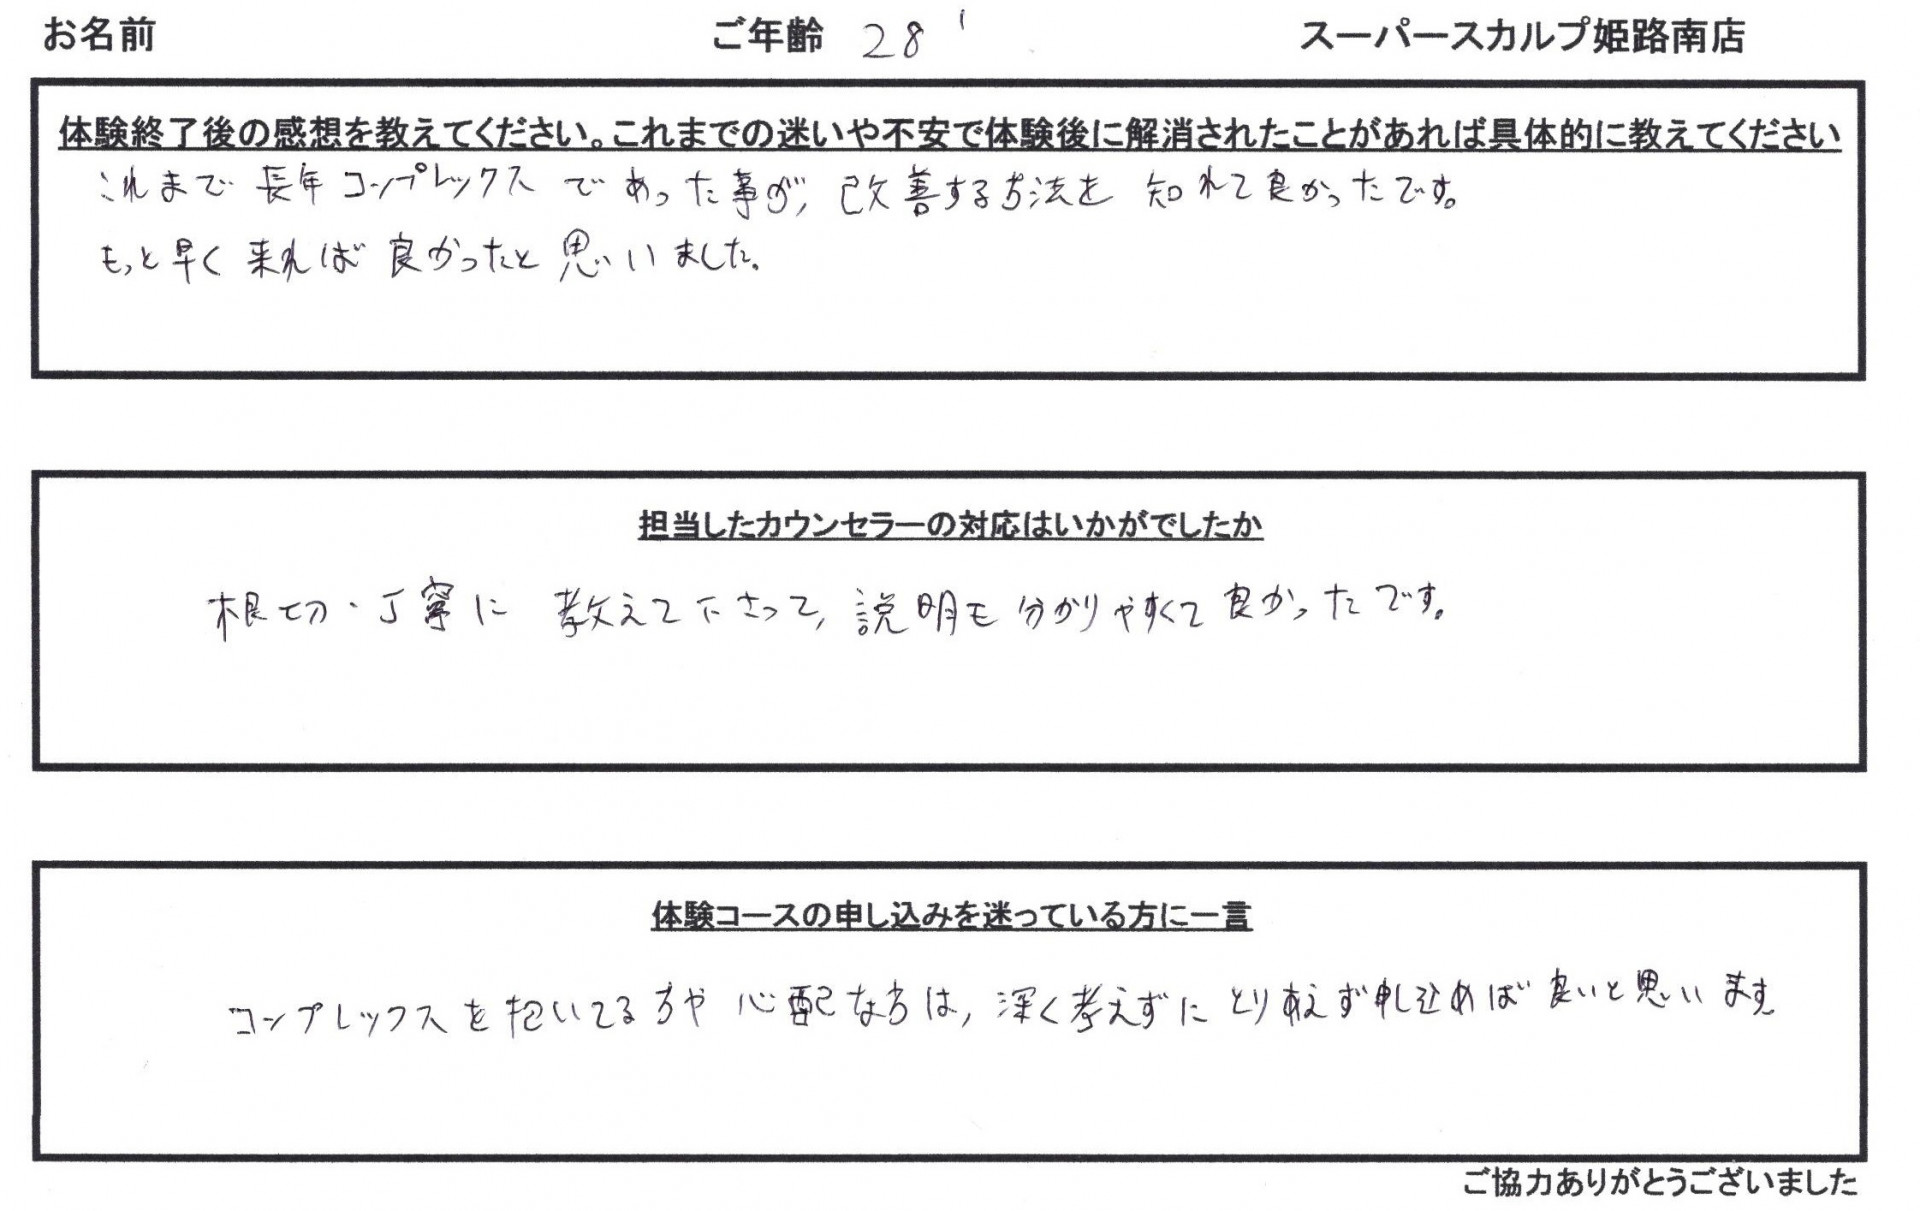 お名前 ご年齢 28 スーパースカルプ姫路南店
体験終了後の感想を教えてください。これまでの迷いや不安で体験後に解消されたことがあれば具体的に教えてください
これまで長年コンプレックスであった事が、改善する方法を知れて良かったです。
もっと早く来れば良かったと思いました。
担当したカウンセラーの対応はいかがでしたか
根切・丁寧に教えて下さって、説明も分かりやすくて良かったです。
体験コースの申し込みを迷っている方に一言
コンプレックスを抱いてる方や心配な方は、深く考えずにとりあえず申し込めば良いと思います。
ご協力ありがとうございました